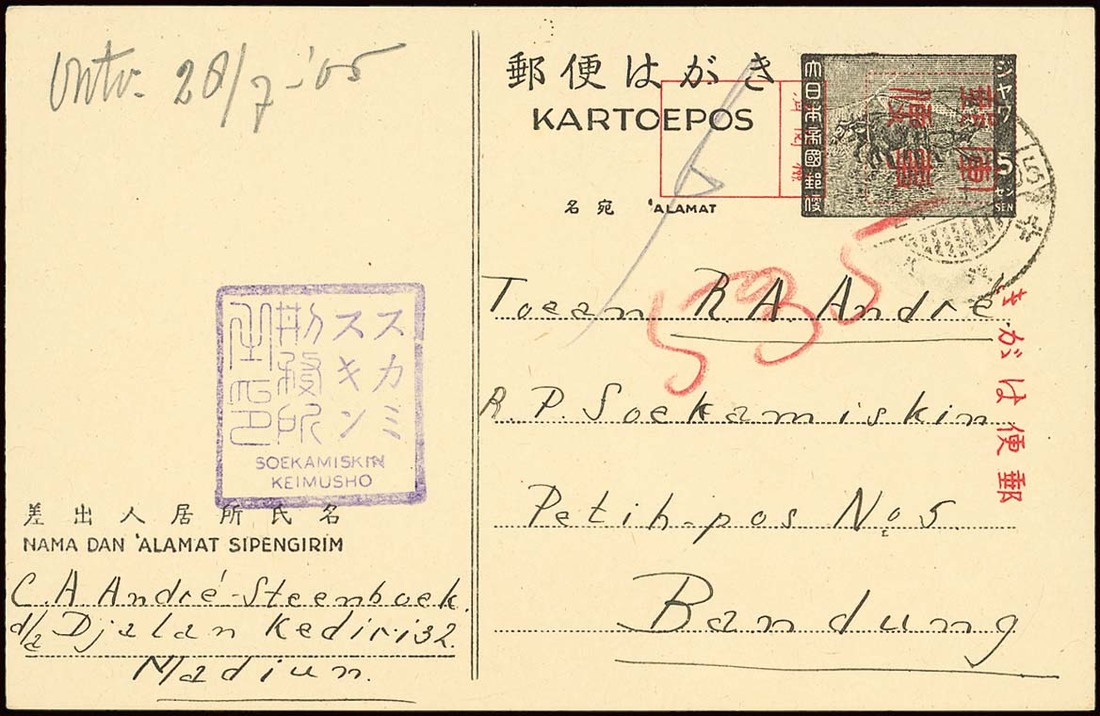 Ontv. 28/7-'05
郵便はがき
KARTOEPOS
大日本帝國郵便
ジャワ
5
セン
SEN
郵便
名宛 'ALAMAT
5935
Toean R.A. André
R.P. Soekamiskin
Petih-pos No 5.
Bandung
郵便はがき
スカミ
スキン
刑務所
SOEKAMISKIN
KEIMUSHO
差出人居所氏名
NAMA DAN 'ALAMAT SIPENGIRIM
C.A André-Steenboek.
d/a Djalan Kediri 32.
Madiun.